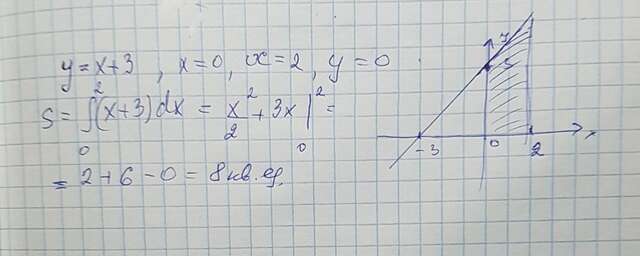 y = x+3 , x = 0, x = 2, y = 0
S = ∫₀² (x+3) dx = x²/2 + 3x |₀² =
= 2 + 6 - 0 = 8 кв. ед.
y
3
-3 0 2 x